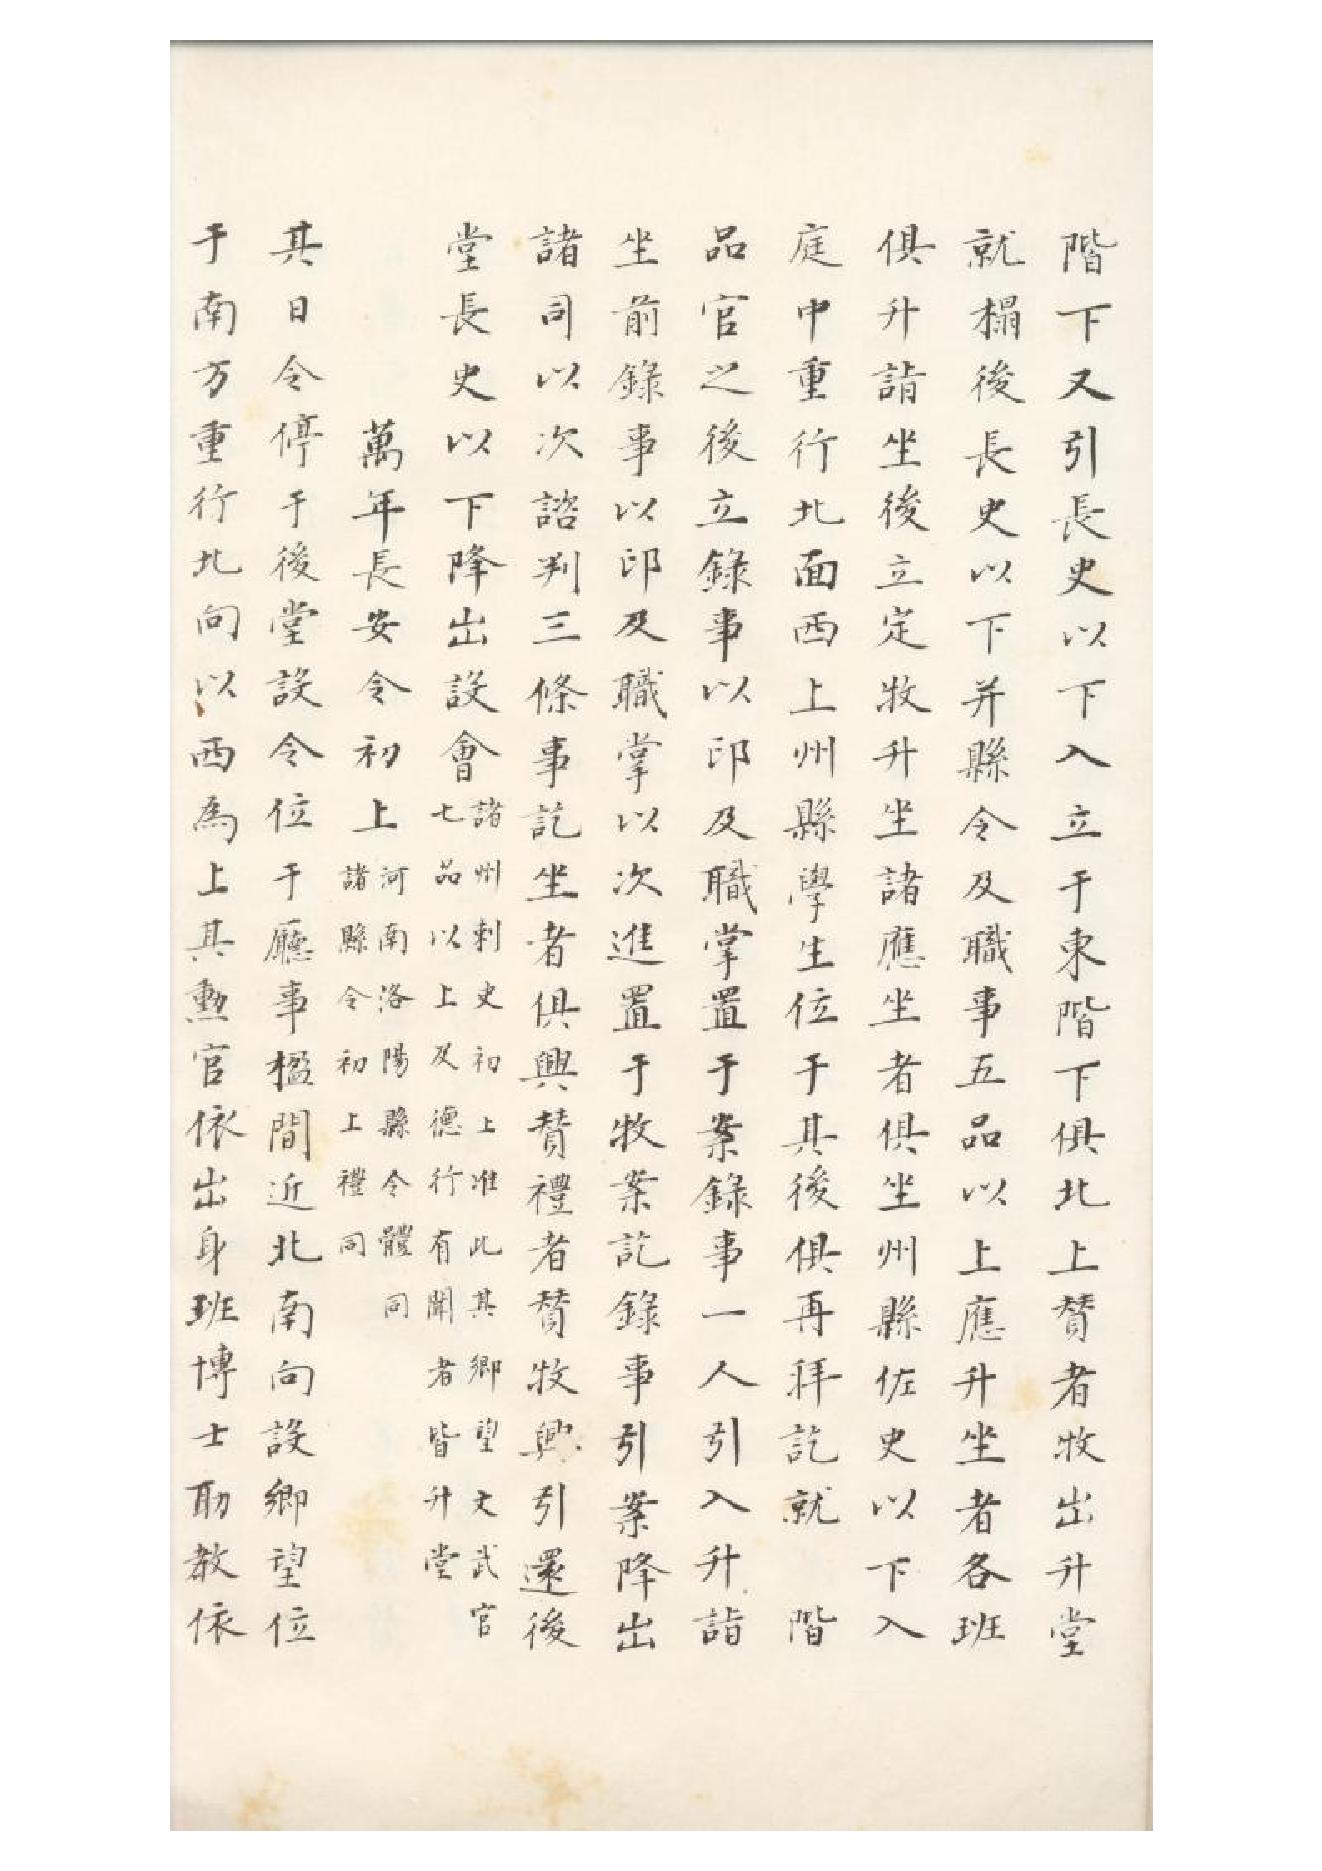 階下又引長史以下入立于東階下俱北上贊者牧出升堂
就榻後長史以下并縣令及職事五品以上應升坐者各班
俱升詣坐後立定牧升坐諸應坐者俱坐州縣佐史以下入
庭中重行北面西上州縣學生位于其後俱再拜訖就階
品官之後立錄事以印及職掌置于案錄事一人引入升詣
坐前錄事以印及職掌以次進置于牧案訖錄事引案降出
諸司以次諮判三條事訖坐者俱興贊禮者贊牧興引還後
堂長史以下降出設會諸州刺史初上准此其鄉望文武官七品以上及德行有聞者皆升堂
萬年長安令初上河南洛陽縣令體同諸縣令初上禮同
其日令停于後堂設令位于廳事楹間近北南向設鄉望位
于南方重行北向以西為上其勲官依出身班博士助教依